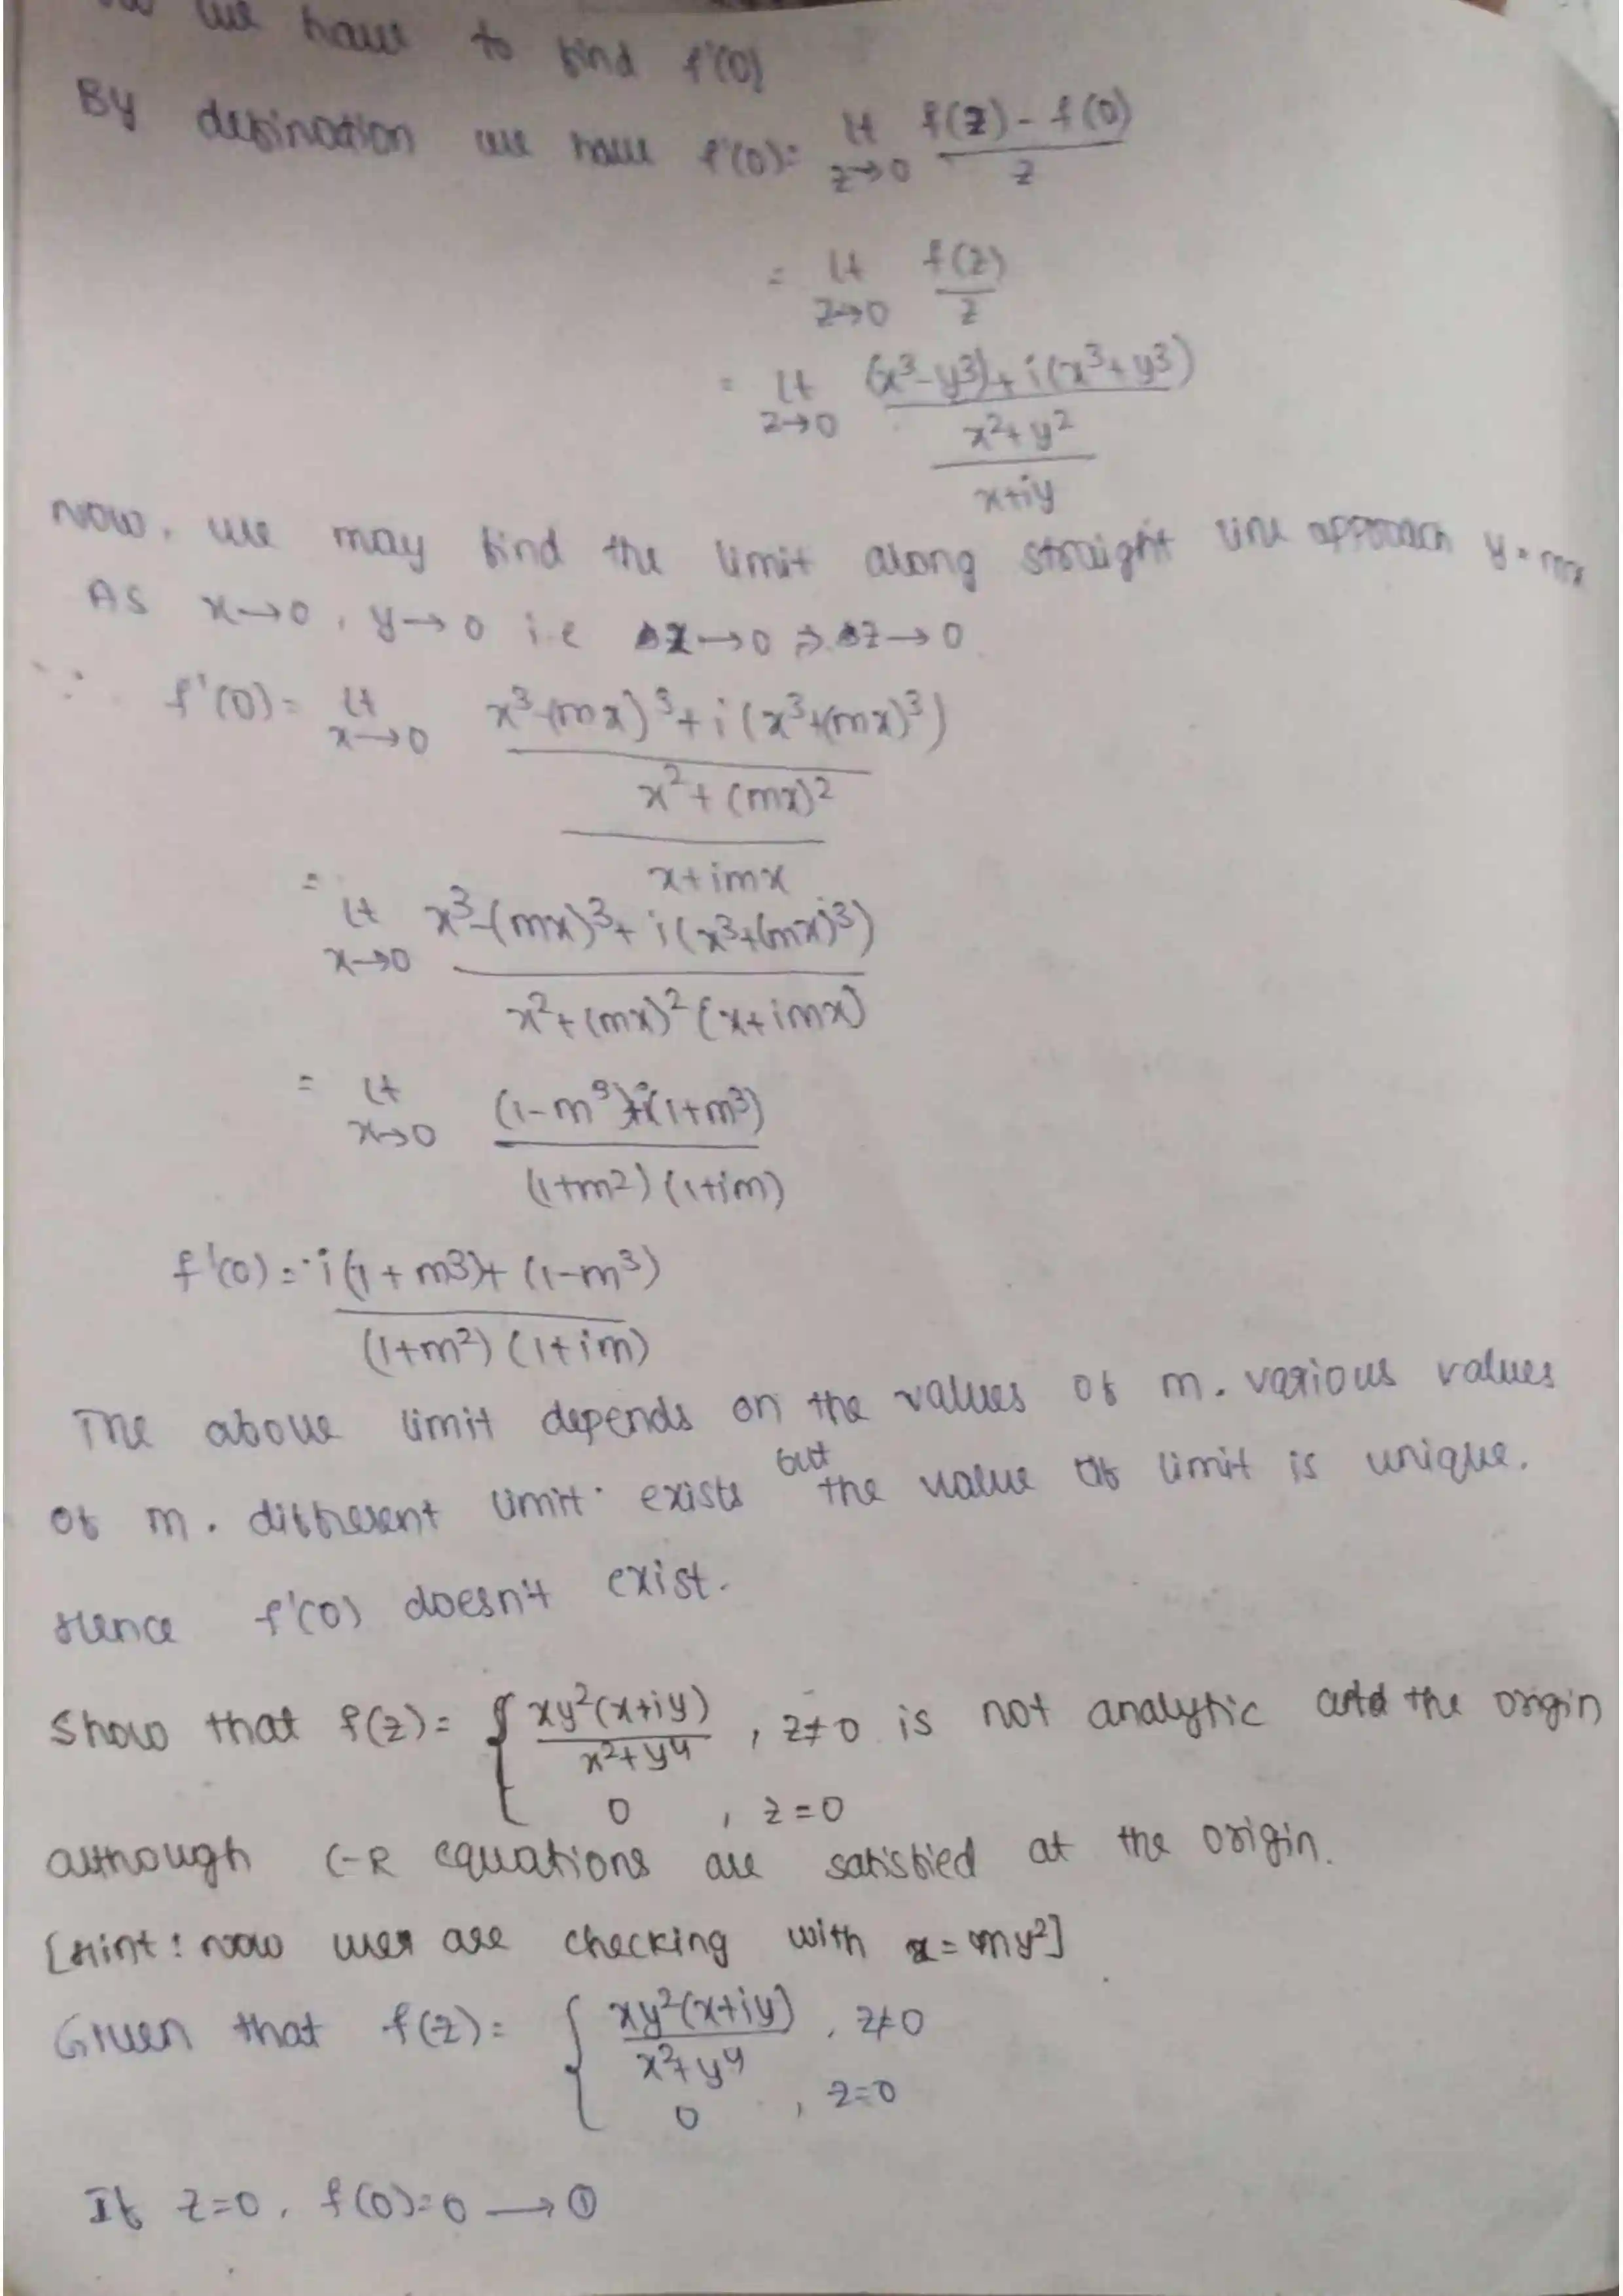 we have to find f'(0)
By defination we have f'(0) = lt z→0 (f(z) - f(0))/z
= lt z→0 f(z)/z
= lt z→0 (((x³-y³)+i(x³+y³))/(x²+y²))/(x+iy)
Now, we may find the limit along straight line approach y=mx
As x→0, y→0 i.e Δx→0 ⇒ Δz→0
∴ f'(0) = lt x→0 ((x³-(mx)³+i(x³+(mx)³))/(x²+(mx)²))/(x+imx)
= lt x→0 (x³-(mx)³+i(x³+(mx)³))/(x²+(mx)²(x+imx))
= lt x→0 ((1-m³)+i(1+m³))/((1+m²)(1+im))
f'(0) = (i(1+m³)+(1-m³))/((1+m²)(1+im))
The above limit depends on the values of m. various values
of m. different limit exists but the value of limit is unique.
Hence f'(0) doesn't exist.
Show that f(z) = { xy²(x+iy)/(x²+y⁴), z≠0 is not analytic at the origin
0, z=0
although C-R equations are satisfied at the origin.
[Hint: now are checking with x=my²]
Given that f(z) = { xy²(x+iy)/(x²+y⁴), z≠0
0, z=0
If z=0, f(0)=0 → ①